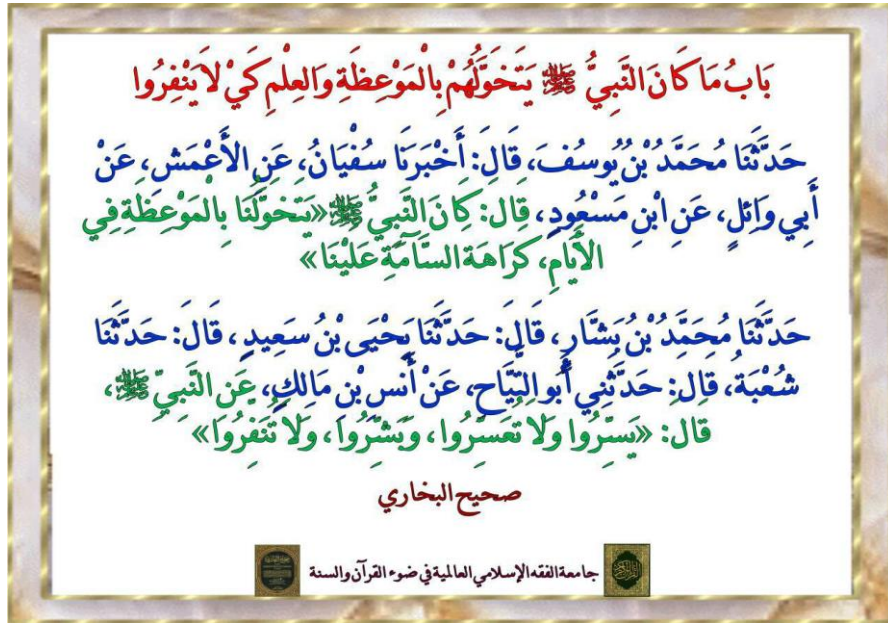 بَابُ مَا كَانَ النَّبِيُّ ﷺ يَتَخَوَّلُهُمْ بِالْمَوْعِظَةِ وَالعِلْمِ كَيْ لاَ يَنْفِرُوا
حَدَّثَنَا مُحَمَّدُ بْنُ يُوسُفَ، قَالَ: أَخْبَرَنَا سُفْيَانُ، عَنِ الأَعْمَشِ، عَنْ
أَبِي وَائِلٍ، عَنِ ابْنِ مَسْعُودٍ، قَالَ: كَانَ النَّبِيُّ ﷺ «يَتَخَوَّلُنَا بِالْمَوْعِظَةِ فِي
الأَيَّامِ، كَرَاهَةَ السَّآمَةِ عَلَيْنَا»
حَدَّثَنَا مُحَمَّدُ بْنُ بَشَّارٍ، قَالَ: حَدَّثَنَا يَحْيَى بْنُ سَعِيدٍ، قَالَ: حَدَّثَنَا
شُعْبَةُ، قَالَ: حَدَّثَنِي أَبُو التَّيَّاحِ، عَنْ أَنَسِ بْنِ مَالِكٍ، عَنِ النَّبِيِّ ﷺ،
قَالَ: «يَسِّرُوا وَلاَ تُعَسِّرُوا، وَبَشِّرُوا، وَلاَ تُنَفِّرُوا»
صحيح البخاري
جامعة الفقه الإسلامي العالمية في ضوء القرآن والسنة